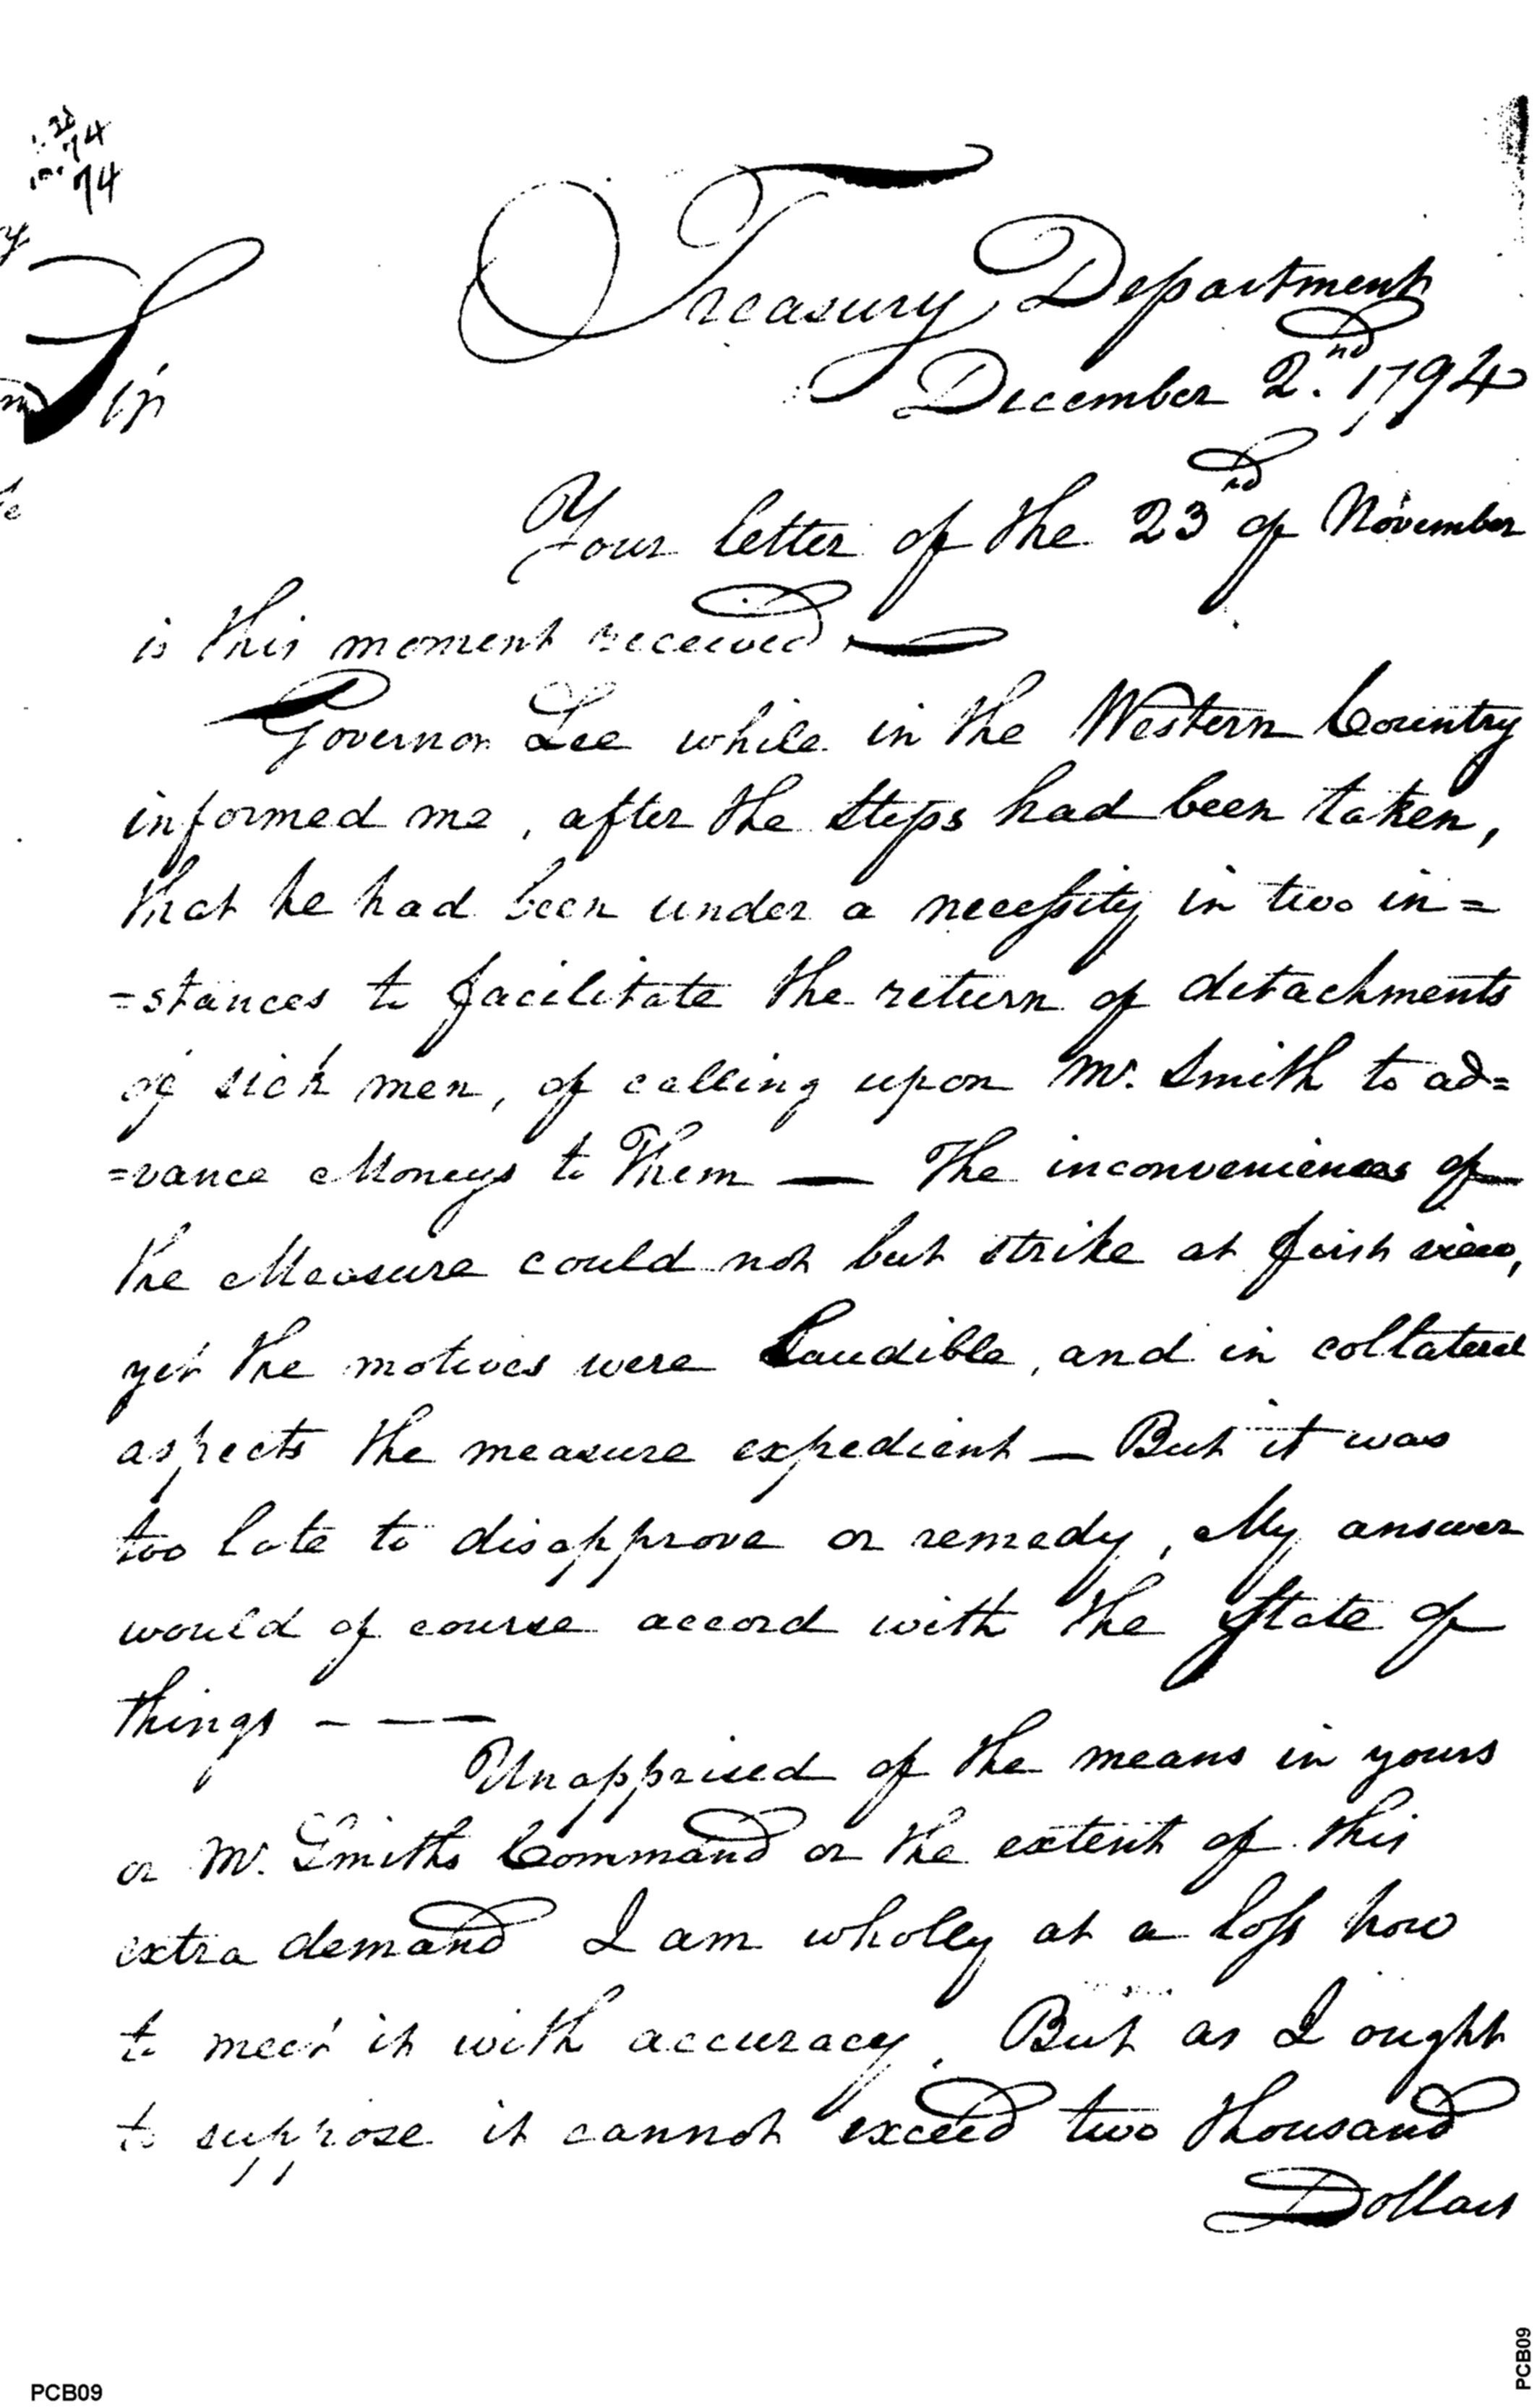 74
74
Treasury Department
December 2.nd 1794
Sir
Your letter of the 23nd of November
is this moment received.
Governor Lee while in the Western Country
informed me, after the steps had been taken,
that he had been under a necessity in two in=
=stances to facilitate the return of detachments
of sick men, of calling upon Mr. Smith to ad=
=vance Moneys to Them — The inconveniences of
the Measure could not but strike at first view,
yet the motives were Laudible, and in collateral
aspects the measure expedient — But it was
too late to disapprove or remedy, My answer
would of course accord with the State of
things - — —
Unapprised of the means in yours
or Mr. Smiths Command or the extent of this
extra demand I am wholly at a loss how
to meet it with accuracy. But as I ought
to suppose it cannot exceed two thousand
Dollars
PCB09
PCB09